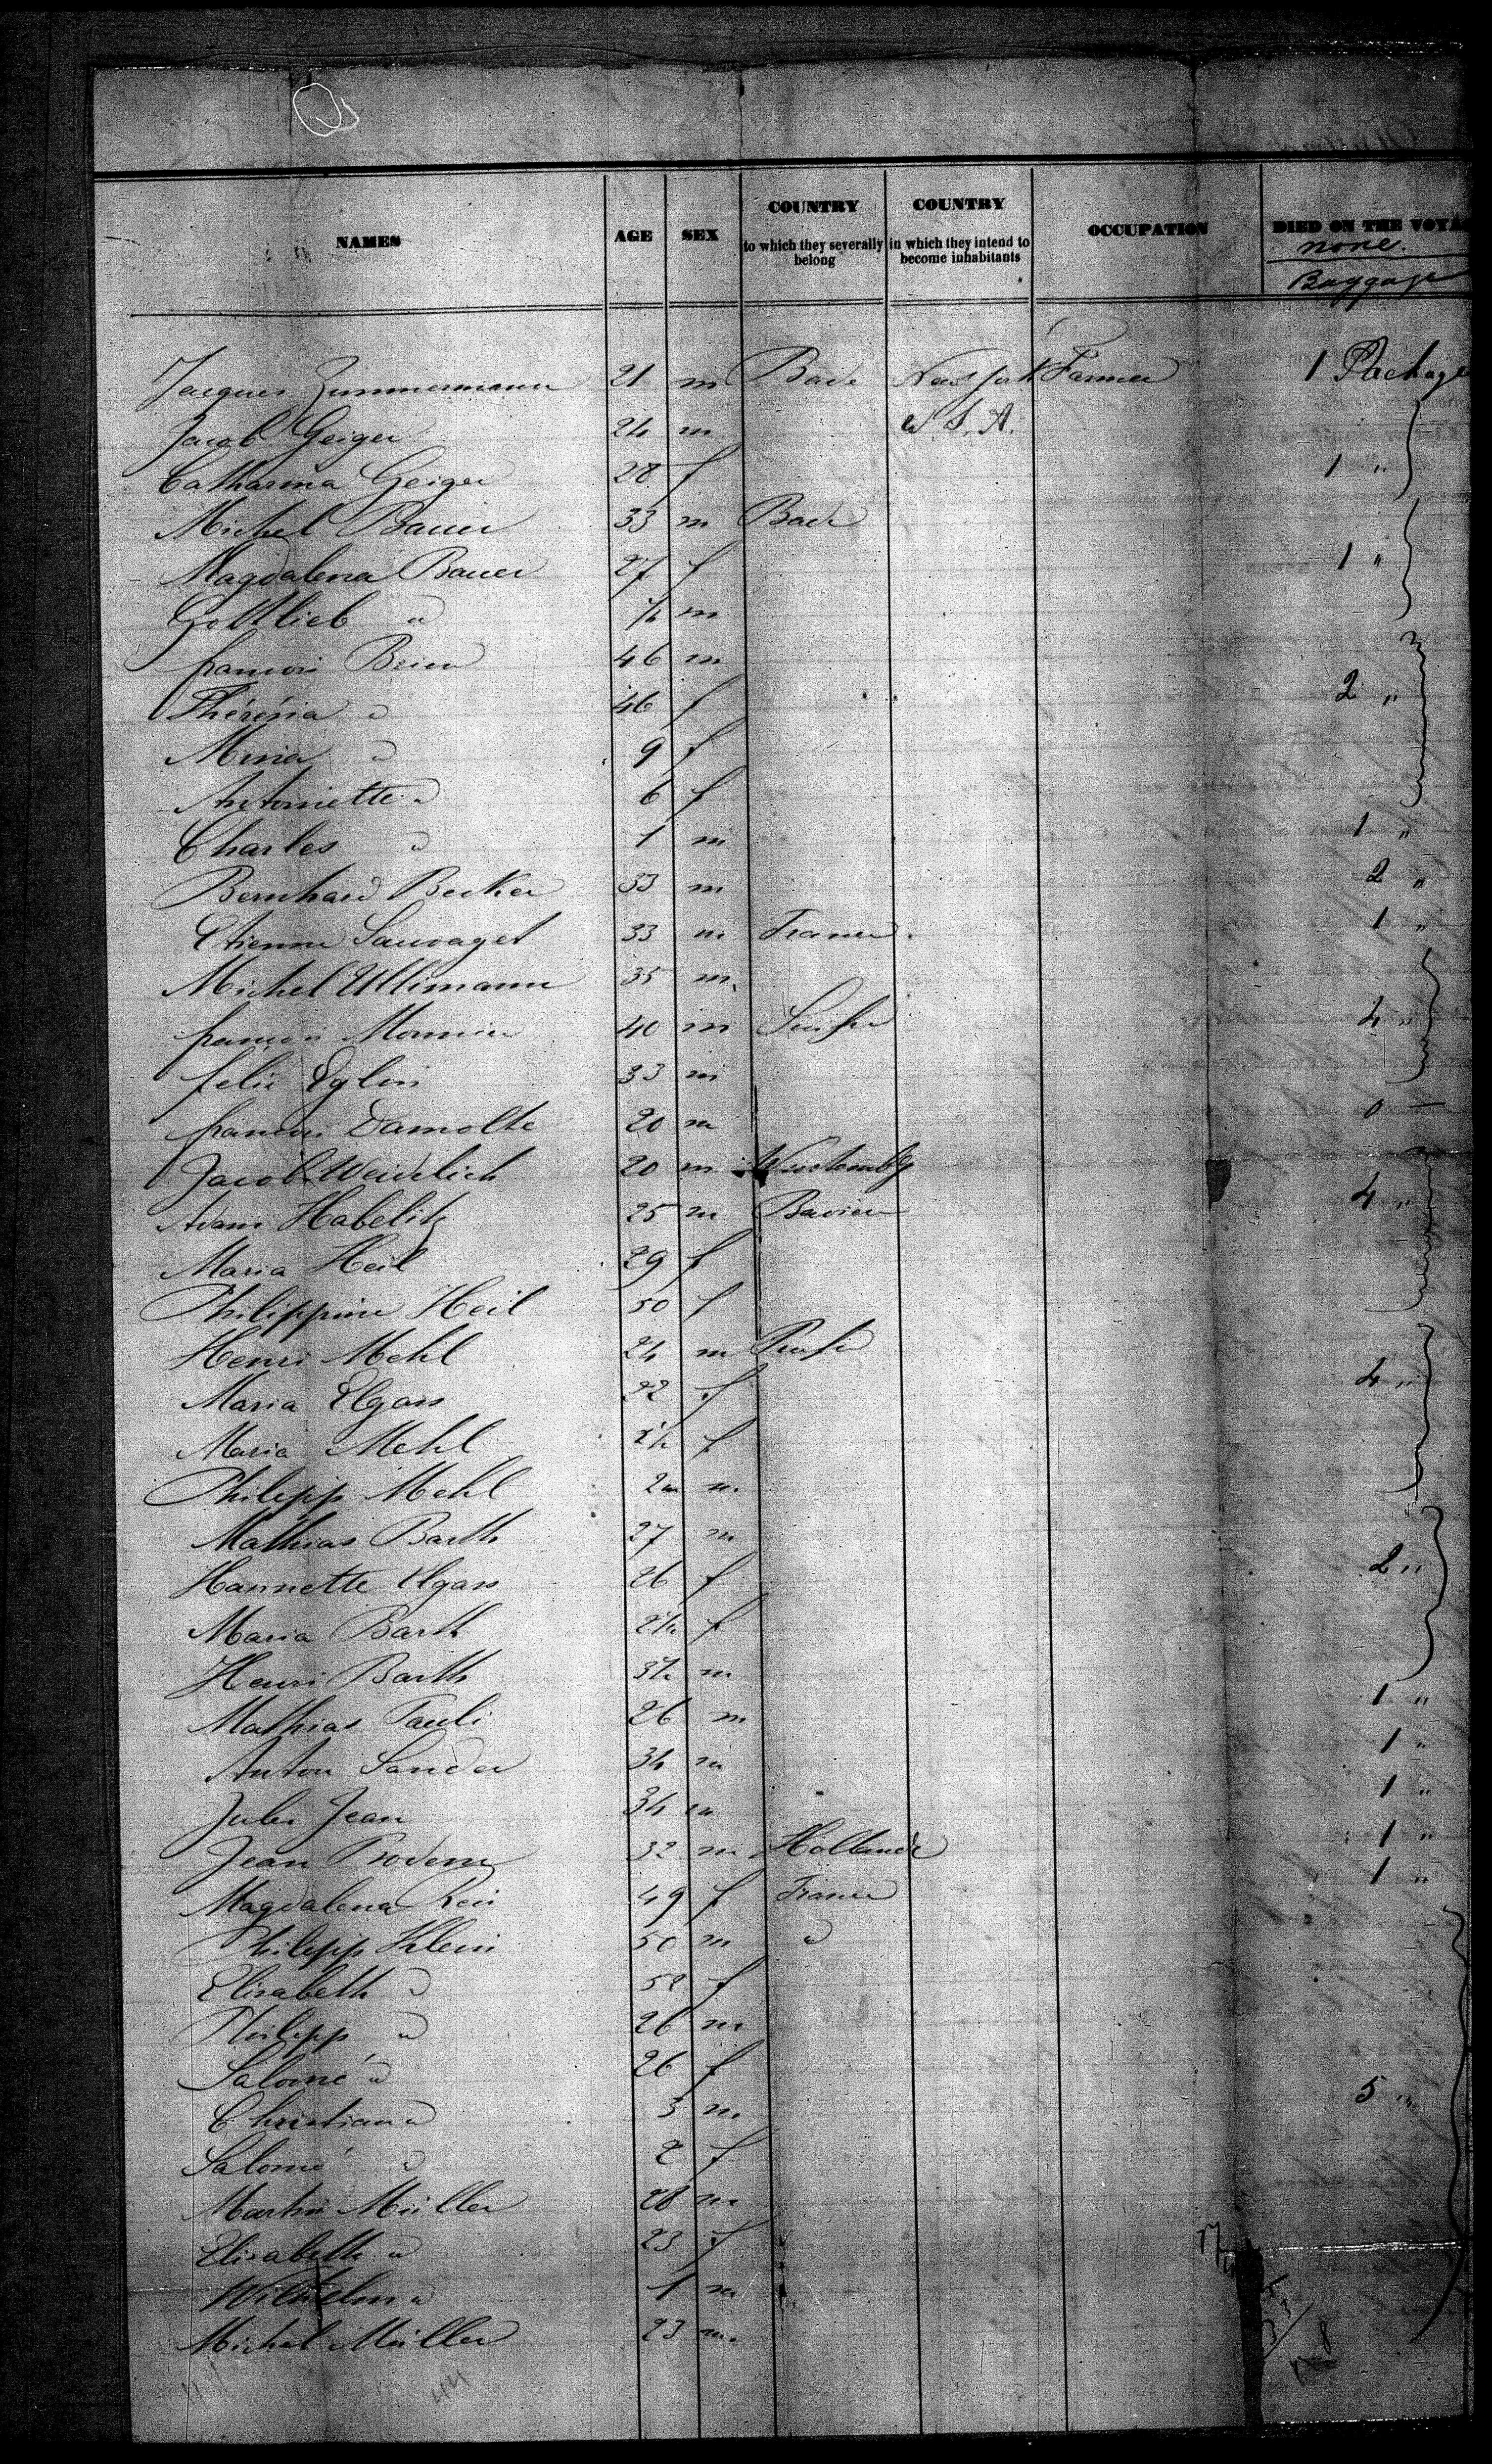 NAMES AGE SEX COUNTRY to which they severally belong COUNTRY in which they intend to become inhabitants OCCUPATION DIED ON THE VOYA
none.
Baggage
Jacques Zimmermann 21 m Bade New York Farmer 1 Package
Jacob Geiger 24 m U.S.A.
Catharina Geiger 28 f 1 "
Michel Bauer 33 m Bade
Magdalena Bauer 27 f 1 "
Gottlieb " m
francois 46 m
Thérésia " 46 f 2 "
" 9 f
Antoniette " 6 f
Charles " 1 m 1 "
Bernhard Becker 33 m 2 "
Etienne Sauvaget 33 m France 1 "
Michel Ullimann 35 m
francois 40 m Suisse 4 "
felix Eglin 33 m
francois Damotte 20 m 0 —
Jacob Weidlich 20 m Wurtembg
Adam Habelitz 25 m Baviere 4 "
Maria Heil 29 f
Philippine Heil 50 f
Henri Mehl 24 m Prusse
Maria Elgass 22 f 4 "
Maria Mehl f
Philipp Mehl 2m m
Mathias Barth 27 m
Hannette Elgass 26 f 2 "
Maria Barth f
Henri Barth m
Mathias Pauli 26 m 1 "
Anton Sander 34 m 1 "
Jules Jean 34 m 1 "
Jean 32 m Hollande 1 "
Magdalena 49 f France 1 "
Philipp Klein 50 m "
Elisabeth " 52 f
Philipp " 26 m
Salomé " 26 f
Christian " 3 m 5 "
Salomé " 2 f
Martin Müller 28 m
Elisabeth " 23 f
Wilhelm " 1 m
Michel Müller 23 m.
44